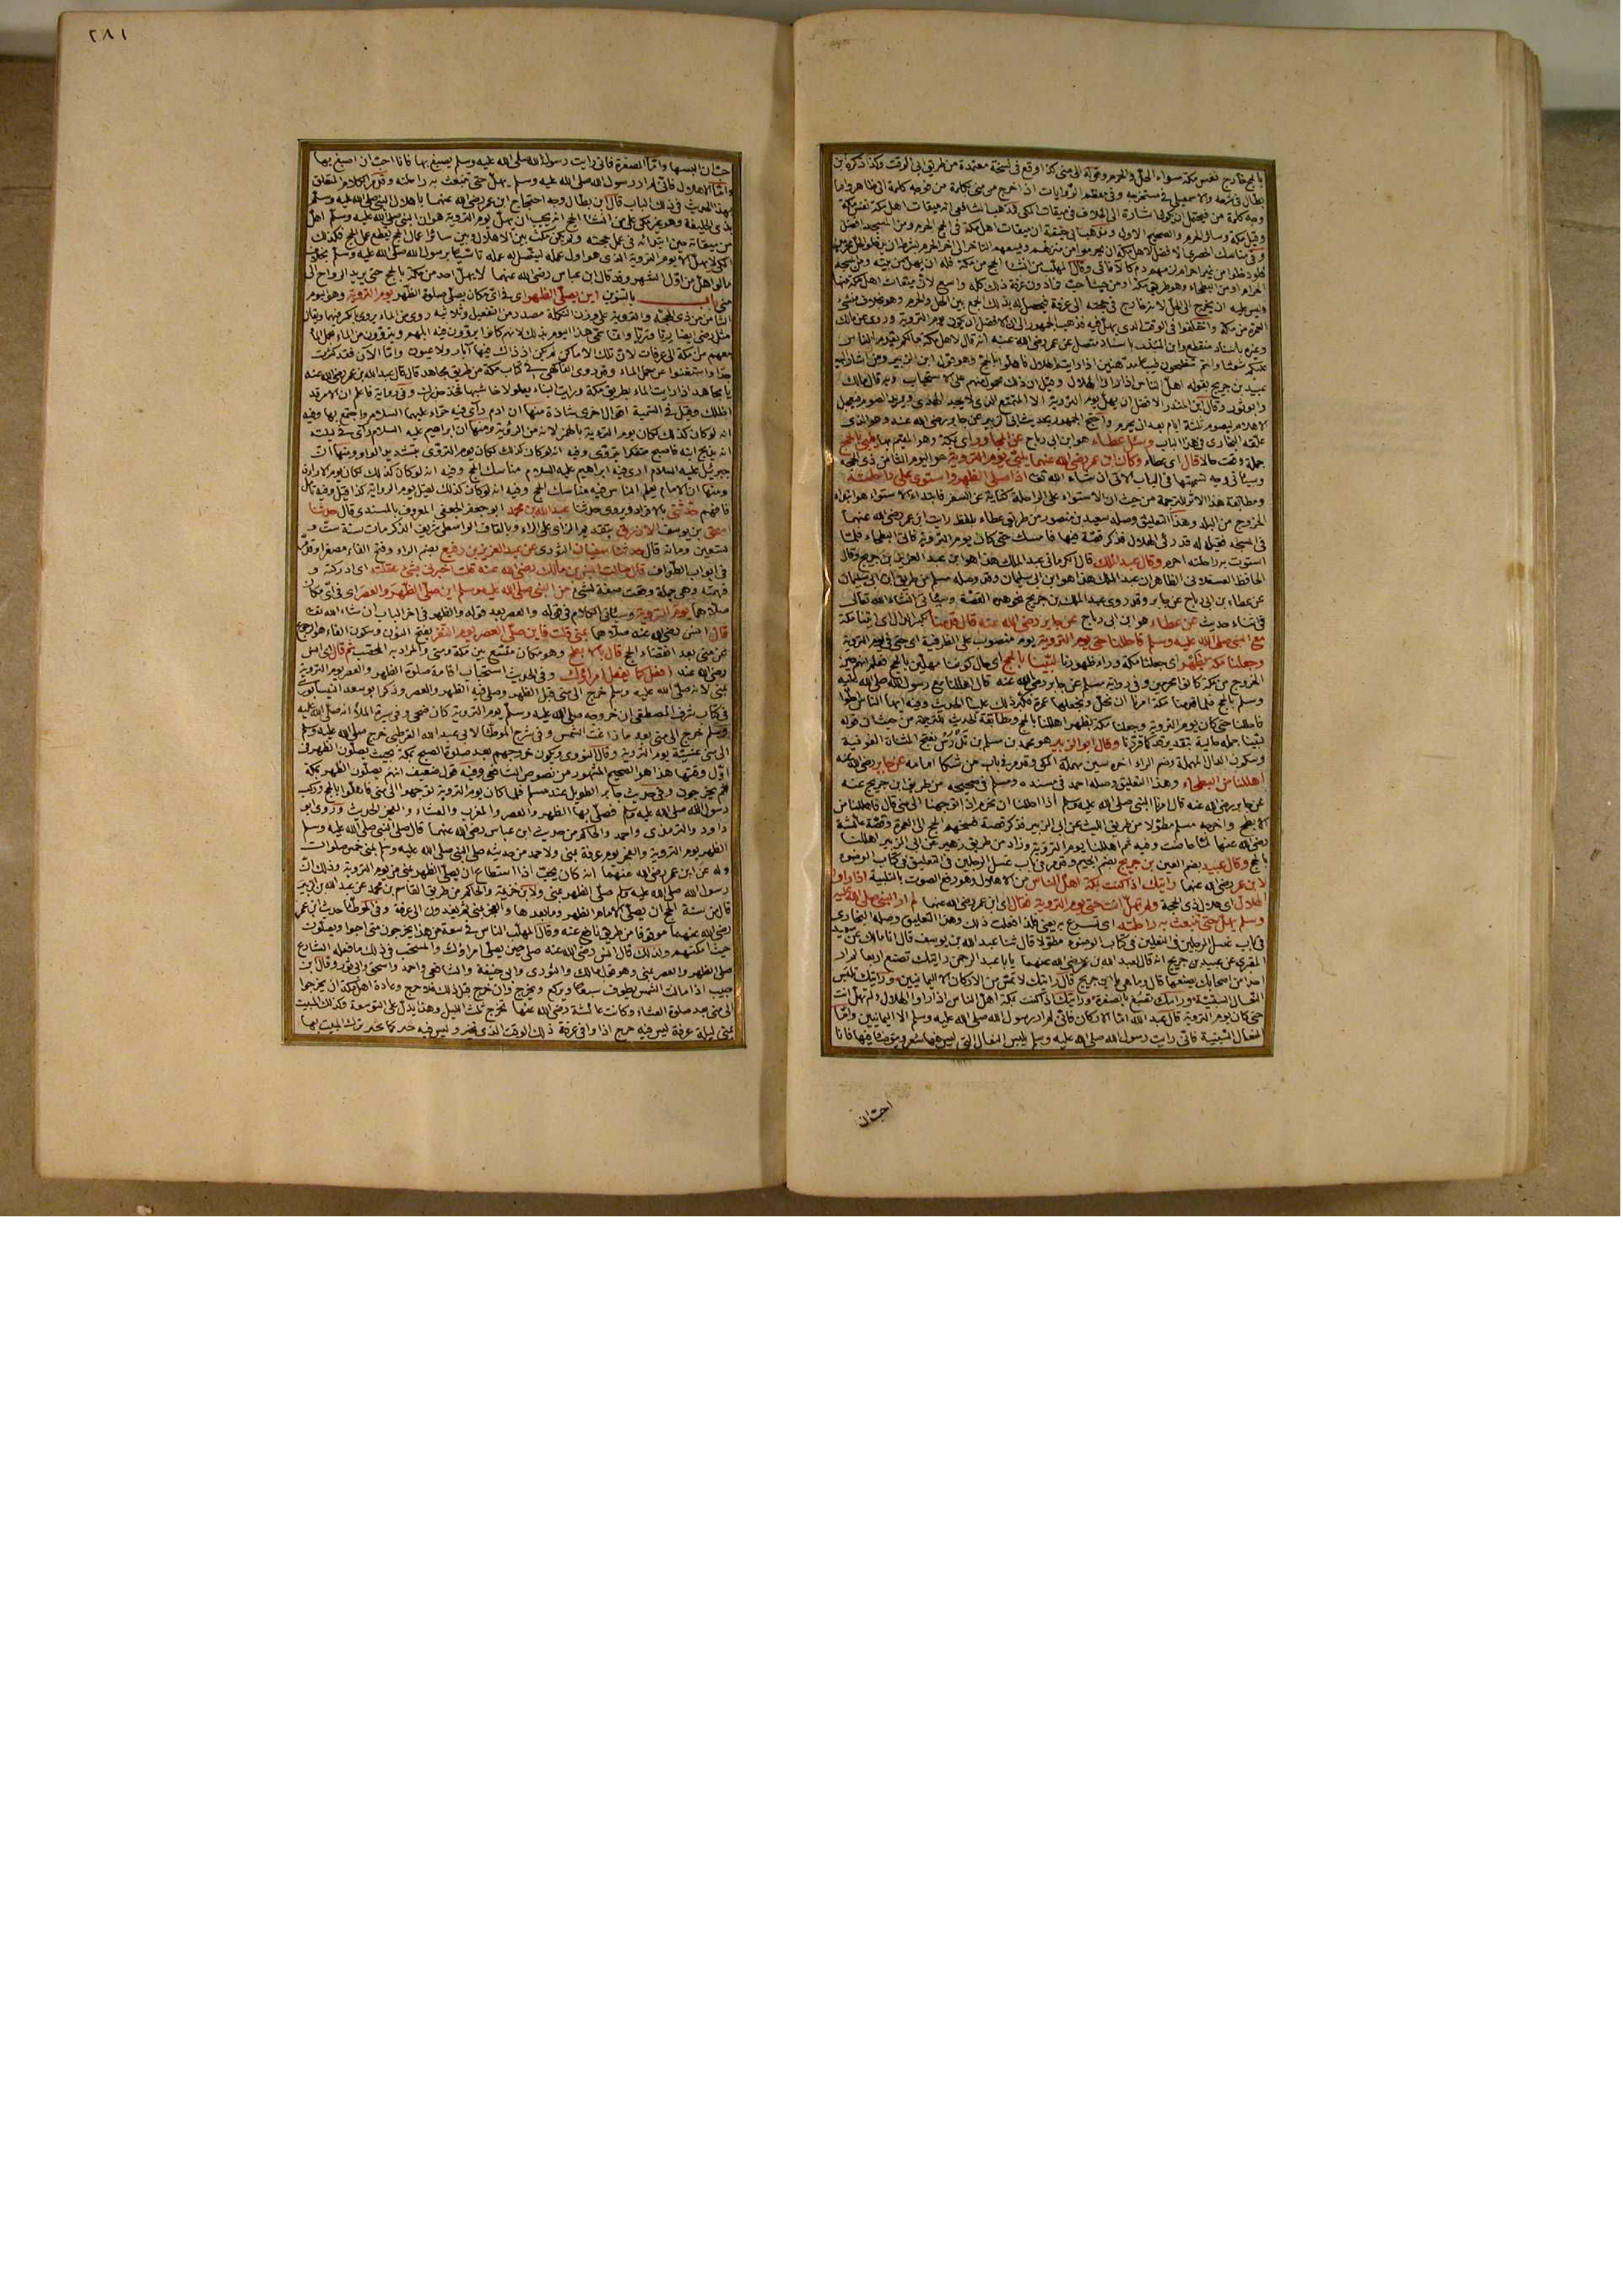 بالحج خارج نفس مكة سواء الحل والحرم وقوله الى منى كذا وقع فى نسخة معتمدة من طريق ابى الوقت وكذا ذكره ابن
بطال فى شرحه والاسمعيلى فى مستخرجه وفى معظم الروايات اذا خرج من منى بكلمة من فوجه كلمة الى ظاهر واما
وجه كلمة من فيحتمل ان يكون اشارة الى الخلاف فى ميقات المكى فذهب الشافعى انه ميقات اهل مكة نفس مكة
وقيل مكة وسائر الحرم والصحيح الاول ومذهب ابى حنيفة ان ميقات اهل مكة فى الحج الحرم ومن المسجد افضل
العمرة من مكة واختلفوا فى الوقت الذى يهل فيه فذهب الجمهور الى ان الافضل ان يكون يوم التروية وروى عن مالك
وغيره باسناد منقطع وابن المنذر باسناد متصل عن عمر رضى الله عنه انه قال لاهل مكة مالكم يقدم الناس
عبيد بن جريج بقوله اهل الناس اذا راوا الهلال وقيل ان ذلك محمول منهم على الاستحباب وبه قال مالك
وابو ثور وقال ابن المنذر الافضل ان يهل يوم التروية الا المتمتع الذى لا يجد الهدى ويريد الصوم فيعجل
الاهلال ليصوم ثلثة ايام بعد ان يحرم واحتج الجمهور بحديث ابى الزبير عن جابر رضى الله عنه وهو الذى
علقه البخارى فى هذا الباب وسئل عطاء هو ابن ابى رباح عن المجاور اى بمكة وهو المقيم بها يلبى بالحج
جملة وقعت حالا قال اى عطاء وكان ابن عمر رضى الله عنهما يلبى يوم التروية هو اليوم الثامن من ذى الحجة
وسياتى وجه تسميتها فى الباب الاتى ان شاء الله تعالى اذا صلى الظهر واستوى على راحلته
ومطابقة هذا الاثر للترجمة من حيث ان الاستواء على الراحلة كناية عن السفر فابتداء الاستواء هو ابتداء
الخروج من البلد وهذا التعليق وصله سعيد بن منصور من طريق عطاء بلفظ رايت ابن عمر رضى الله عنهما
فى المسجد فقيل له قد رئى الهلال فذكر قصة فيها فامسك حتى كان يوم التروية فاتى البطحاء فلما
استوت به راحلته احرم وقال عبد الملك قال الكرمانى عبد الملك هذا هو ابن عبد العزيز بن جريج وقال
الحافظ العسقلانى الظاهر ان عبد الملك هذا هو ابن ابى سليمان وقد وصله مسلم من طريق ابن ابى سليمان
عن عطاء بن ابى رباح عن جابر وقد روى عبد الملك بن جريج نحو هذه القصة وسياتى ان شاء الله تعالى
فى اثناء حديث عن عطاء هو ابن ابى رباح عن جابر رضى الله عنه قال قدمنا بكسر الدال اى اتينا مكة
مع النبى صلى الله عليه وسلم فاحللنا حتى يوم التروية يوم منصوب على الظرفية اى حتى فى يوم التروية
وجعلنا مكة بظهر اى جعلنا مكة وراء ظهورنا لبينا بالحج اى حال كوننا مهلين بالحج فعلم انهم حين
الخروج من مكة كانوا محرمين وفى رواية مسلم عن جابر رضى الله عنه قال اهللنا مع رسول الله صلى الله عليه
وسلم بالحج فلما قدمنا مكة امرنا ان نحل ونجعلها عمرة فكبر ذلك علينا الحديث وفيه ايها الناس احلوا
فاحللنا حتى كان يوم التروية وجعلنا مكة بظهر اهللنا بالحج ومطابقة الحديث للترجمة من حيث ان قوله
لبينا جملة حالية بتقدير قد كما قررنا وقال ابو الزبير هو محمد بن مسلم بن تدرس بفتح المثناة الفوقية
وسكون الدال المهملة وضم الراء اخره سين مهملة المكى وقد مر فى باب من شكا امامه عن جابر رضى الله عنه
اهللنا من البطحاء وهذا التعليق وصله احمد فى مسنده ومسلم فى صحيحه من طريق ابن جريج عنه
عن جابر رضى الله عنه قال امرنا النبى صلى الله عليه وسلم اذا احللنا ان نحرم اذا توجهنا الى منى قال فاهللنا من
الابطح واخرجه مسلم مطولا من طريق الليث عن ابى الزبير فذكر قصة فسخهم الحج الى العمرة وقصة عائشة
رضى الله عنها لما حاضت وفيه ثم اهللنا يوم التروية وزاد من طريق زهير عن ابى الزبير اهللنا
بالحج وقال عبيد بضم العين بن جريج بضم الجيم وقد مر فى باب غسل الرجلين فى النعلين فى كتاب الوضوء
لابن عمر رضى الله عنهما رايتك اذا كنت بمكة اهل الناس من الاهلال وهو رفع الصوت بالتلبية اذا راوا
الهلال اى هلال ذى الحجة ولم تهل انت حتى يوم التروية فقال اى ابن عمر رضى الله عنهما لم ار النبى صلى الله عليه
وسلم يهل حتى تنبعث به راحلته اى تسرع به يعنى فلذا فعلت ذلك وهذا التعليق وصله البخارى
فى باب غسل الرجلين فى النعلين فى كتاب الوضوء مطولا قال ثنا عبد الله بن يوسف قال انا مالك عن سعيد
المقبرى عن عبيد بن جريج انه قال لعبد الله بن عمر رضى الله عنهما يا ابا عبد الرحمن رايتك تصنع اربعا لم ار
احدا من اصحابك يصنعها قال وما هى يا ابن جريج قال رايتك لا تمس من الاركان الا اليمانيين ورايتك تلبس
النعال السبتية ورايتك تصبغ بالصفرة ورايتك اذا كنت بمكة اهل الناس اذا راوا الهلال ولم تهل انت
حتى كان يوم التروية قال عبد الله اما الاركان فانى لم ار رسول الله صلى الله عليه وسلم الا اليمانيين واما
النعال السبتية فانى رايت رسول الله صلى الله عليه وسلم يلبس النعال التى ليس فيها شعر ويتوضأ فيها فانا
احب ان
٢٨١
احب ان البسها واما الصفرة فانى رايت رسول الله صلى الله عليه وسلم يصبغ بها فانا احب ان اصبغ بها
واما الاهلال فانى لم ار رسول الله صلى الله عليه وسلم يهل حتى تنبعث به راحلته وقد مر الكلام المتعلق
بهذا الحديث فى ذلك الباب قال ابن بطال وجه احتجاج ابن عمر رضى الله عنهما باهلال النبى صلى الله عليه وسلم
بذى الحليفة وهو غير مكى على من انشا الحج انه يجب ان يهل يوم التروية هو ان النبى صلى الله عليه وسلم اهل
من ميقاته حين ابتدائه فى عمل حجته ولم يكن مكث بين الاهلال وبين سائر اعمال الحج يقطع عمل الحج فكذلك
المكى لا يهل الا يوم التروية الذى هو اول عمله ليتصل له عمله تاسيا برسول الله صلى الله عليه وسلم بخلاف
ما لو اهل من اول الشهر وقد قال ابن عباس رضى الله عنهما لا يهل احد من مكة بالحج حتى يريد الرواح الى
منى باب بالتنوين اين يصلى الظهر اى فى اى مكان يصلى صلوة الظهر يوم التروية وهو يوم
الثامن من ذى الحجة والتروية على وزن التكملة مصدر من التفعيل وثلاثيه روى من الماء يروى
معهم من مكة الى عرفات لان تلك الاماكن لم يكن اذ ذاك فيها آبار ولا عيون واما الآن فقد كثرت
جدا واستغنوا عن حمل الماء وقد روى الفاكهى فى كتاب مكة من طريق مجاهد قال قال عبد الله بن عمر رضى الله عنه
يا مجاهد اذا رايت الماء بطريق مكة ورايت البناء يعلو اخاشبها فخذ حذرك وفى رواية فاعلم ان الامر قد
اظلك وقيل فى التسمية اقوال اخرى شاذة منها ان ادم راى فيه حواء عليهما السلام واجتمع بها وفيه
انه لو كان كذلك لكان يوم الترؤية بالهمز لانه من الرؤية ومنها ان ابراهيم عليه السلام راى فى ليلته
انه يذبح ابنه فاصبح متفكرا يتروى وفيه انه لو كان كذلك لكان يوم التروى بتشديد الواو ومنها ان
جبرئيل عليه السلام ارى فيه ابراهيم عليه السلام مناسك الحج وفيه انه لو كان كذلك لكان يوم الاراءة
ومنها ان الامام يعلم الناس فيه مناسك الحج وفيه انه لو كان كذلك لقيل يوم الرواية كذا قيل وفيه تامل
فافهم حدثنى بالافراد ويروى حدثنا عبد الله بن محمد ابو جعفر الجعفى المعروف بالمسندى قال حدثنا
اسحق بن يوسف الازرق بتقديم الزاى على الراء وبالقاف الواسطى مات سنة ست و
تسعين ومائة قال حدثنا سفيان الثورى عن عبد العزيز بن رفيع بضم الراء وفتح الفاء مصغرا وقد مر
فى ابواب الطواف قال سالت انس بن مالك رضى الله عنه قلت اخبرنى بشئ عقلته اى ادركته و
فهمته وهى جملة وقعت صفة لشئ من النبى صلى الله عليه وسلم اين صلى الظهر والعصر اى فى اى مكان
صلاهما يوم التروية وسياتى الكلام فى قوله والعصر بعد قوله والظهر فى اخر الباب ان شاء الله تعالى
قال انس رضى الله عنه صلاهما بمنى قلت فاين صلى العصر يوم النفر بفتح النون وسكون الفاء هو الرجوع
من منى بعد انقضاء الحج قال بالابطح وهو مكان متسع بين مكة ومنى والمراد به المحصب ثم قال اى انس
رضى الله عنه افعل كما يفعل امراؤك وفى الحديث استحباب اقامة صلوة الظهر والعصر يوم التروية
بمنى لانه صلى الله عليه وسلم خرج الى منى قبل الظهر وصلى فيه الظهر والعصر وذكر ابو سعد النيسابورى
فى كتاب شرف المصطفى ان خروجه صلى الله عليه وسلم يوم التروية كان ضحى وفى سيرة الملا انه صلى الله عليه
وسلم خرج الى منى بعد ما زاغت الشمس وفى شرح الموطأ لابى عبد الله القرطبى خرج صلى الله عليه وسلم
الى منى عشية يوم التروية وقال النووى ويكون خروجهم بعد صلوة الصبح بمكة بحيث يصلون الظهر فى
اول وقتها هذا هو الصحيح المشهور من نصوص الشافعى وفيه قول ضعيف انهم يصلون الظهر بمكة
ثم يخرجون وفى حديث جابر الطويل عند مسلم فلما كان يوم التروية توجهوا الى منى فاهلوا بالحج وركب
رسول الله صلى الله عليه وسلم فصلى بها الظهر والعصر والمغرب والعشاء والفجر الحديث وروى ابو
داود والترمذى واحمد والحاكم من حديث ابن عباس رضى الله عنهما قال صلى النبى صلى الله عليه وسلم
الظهر يوم التروية والفجر يوم عرفة بمنى ولاحمد من حديثه صلى النبى صلى الله عليه وسلم بمنى خمس صلوات
وله عن ابن عمر رضى الله عنهما انه كان يحب اذا استطاع ان يصلى الظهر بمنى من يوم التروية وذلك ان
رسول الله صلى الله عليه وسلم صلى الظهر بمنى ولابن خزيمة والحاكم من طريق القاسم بن محمد عن عبد الله بن الزبير
قال من سنة الحج ان يصلى الامام الظهر وما بعدها والفجر بمنى ثم يغدون الى عرفة وفى الموطأ حديث ابن عمر
رضى الله عنهما موقوفا من طريق نافع عنه وقال المهلب الناس فى سعة من هذا يخرجون متى احبوا ويصلون
حيث امكنهم ولذلك قال انس رضى الله عنه صل حيث يصلى امراؤك والمستحب فى ذلك ما فعله الشارع
صلى الظهر والعصر بمنى وهو قول مالك والثورى وابى حنيفة والشافعى واحمد واسحق وابى ثور وقال ابن
حبيب اذا مالت الشمس يطوف سبعا ويركع ويخرج وان خرج قبل ذلك فلا حرج وعادة اهل مكة ان يخرجوا
الى منى بعد صلوة العشاء وكانت عائشة رضى الله عنها تخرج ثلث الليل وهذا يدل على التوسعة وكذلك المبيت
بمنى ليلة عرفة ليس فيه حرج اذا وافى عرفة ذلك الوقت الذى يخير وليس فيه جبر كما يجبر ترك المبيت بها